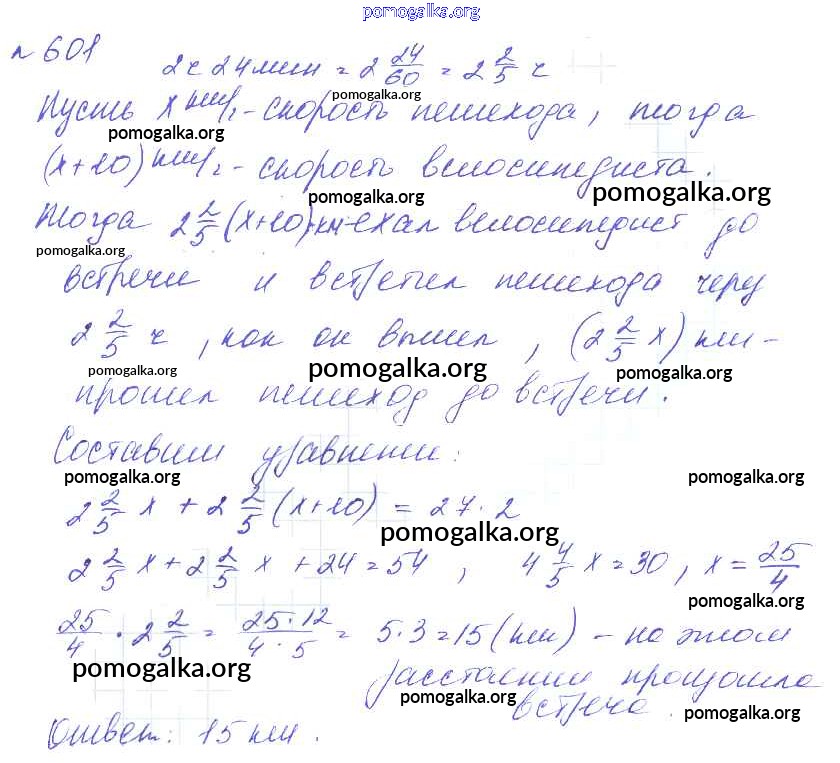 pomogalka.org
№ 601
2 ч 24 мин = 2 24/60 = 2 2/5 ч
pomogalka.org
Пусть x км/ч - скорость пешехода, тогда
pomogalka.org
(x+10) км/ч - скорость велосипедиста.
pomogalka.org pomogalka.org
Тогда 2 2/5 (x+10) км ехал велосипедист до
pomogalka.org
встречи и встретил пешехода через
2 2/5 ч, как он вышел, (2 2/5 x) км -
pomogalka.org pomogalka.org pomogalka.org
прошел пешеход до встречи.
Составим уравнение:
pomogalka.org pomogalka.org
2 2/5 x + 2 2/5 (x+10) = 27·2
pomogalka.org
2 2/5 x + 2 2/5 x + 24 = 54, 4 4/5 x = 30, x = 25/4
pomogalka.org
25/4 · 2 2/5 = 25·12/4·5 = 5·3 = 15 (км) - на этом
pomogalka.org
расстоянии произошла
pomogalka.org
встреча.
pomogalka.org
Ответ: 15 км.